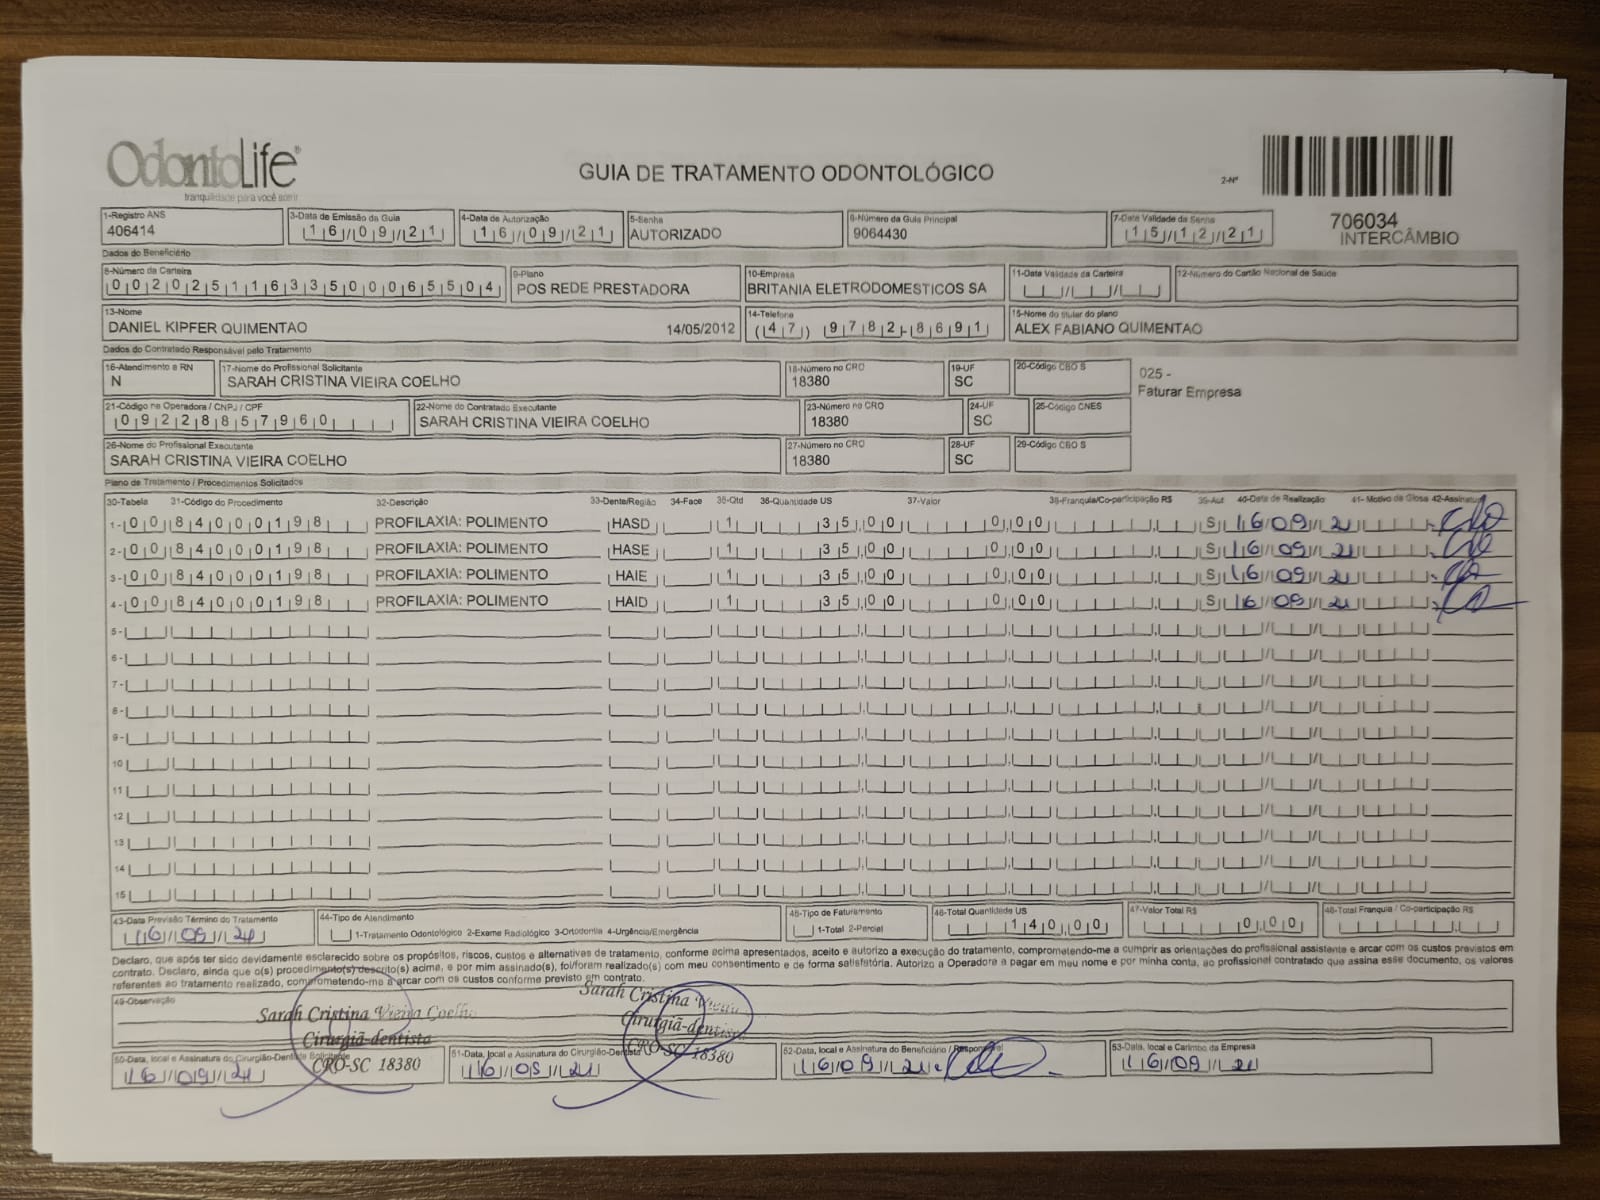 OdontoLife®
tranquilidade para você sorrir
GUIA DE TRATAMENTO ODONTOLÓGICO
2-Nº
706034
INTERCÂMBIO
1-Registro ANS
406414
3-Data de Emissão da Guia
16/09/21
4-Data de Autorização
16/09/21
5-Senha
AUTORIZADO
6-Número da Guia Principal
9064430
7-Data Validade da Senha
15/12/21
Dados do Beneficiário
8-Número da Carteira
00202511633500065504
9-Plano
POS REDE PRESTADORA
10-Empresa
BRITANIA ELETRODOMESTICOS SA
11-Data Validade da Carteira
12-Número do Cartão Nacional de Saúde
13-Nome
DANIEL KIPFER QUIMENTAO 14/05/2012
14-Telefone
(47) 9782-8691
15-Nome do titular do plano
ALEX FABIANO QUIMENTAO
Dados do Contratado Responsável pelo Tratamento
16-Atendimento a RN
N
17-Nome do Profissional Solicitante
SARAH CRISTINA VIEIRA COELHO
18-Número no CRO
18380
19-UF
SC
20-Código CBO S
025 -
Faturar Empresa
21-Código na Operadora / CNPJ / CPF
09228857960
22-Nome do Contratado Executante
SARAH CRISTINA VIEIRA COELHO
23-Número no CRO
18380
24-UF
SC
25-Código CNES
26-Nome do Profissional Executante
SARAH CRISTINA VIEIRA COELHO
27-Número no CRO
18380
28-UF
SC
29-Código CBO S
Plano de Tratamento / Procedimentos Solicitados
30-Tabela 31-Código do Procedimento 32-Descrição 33-Dente/Região 34-Face 35-Qtd 36-Quantidade US 37-Valor 38-Franquia/Co-participação R$ 39-Aut 40-Data de Realização 41- Motivo da Glosa 42-Assinatura
1- 00 84000198 PROFILAXIA: POLIMENTO HASD 1 35,00 0,00 S 16/09/21
2- 00 84000198 PROFILAXIA: POLIMENTO HASE 1 35,00 0,00 S 16/09/21
3- 00 84000198 PROFILAXIA: POLIMENTO HAIE 1 35,00 0,00 S 16/09/21
4- 00 84000198 PROFILAXIA: POLIMENTO HAID 1 35,00 0,00 S 16/09/21
5-
6-
7-
8-
9-
10
11
12
13
14
15
43-Data Previsão Término do Tratamento
16/09/21
44-Tipo de Atendimento
1-Tratamento Odontológico 2-Exame Radiológico 3-Ortodontia 4-Urgência/Emergência
45-Tipo de Faturamento
1-Total 2-Parcial
46-Total Quantidade US
140,00
47-Valor Total R$
0,00
48-Total Franquia / Co-participação R$
Declaro, que após ter sido devidamente esclarecido sobre os propósitos, riscos, custos e alternativas de tratamento, conforme acima apresentados, aceito e autorizo a execução do tratamento, comprometendo-me a cumprir as orientações do profissional assistente e arcar com os custos previstos em
contrato. Declaro, ainda que o(s) procedimento(s) descrito(s) acima, e por mim assinado(s), foi/foram realizado(s) com meu consentimento e de forma satisfatória. Autorizo a Operadora a pagar em meu nome e por minha conta, ao profissional contratado que assina esse documento, os valores
referentes ao tratamento realizado, comprometendo-me a arcar com os custos conforme previsto em contrato.
49-Observação
Sarah Cristina Vieira Coelho
Cirurgiã-dentista
CRO-SC 18380
Sarah Cristina Vieira
Cirurgiã-dentista
CRO-SC 18380
50-Data, local e Assinatura do Cirurgião-Dentista Solicitante
16/09/21
51-Data, local e Assinatura do Cirurgião-Dentista
16/09/21
52-Data, local e Assinatura do Beneficiário / Responsável
16/09/21
53-Data, local e Carimbo da Empresa
16/09/21